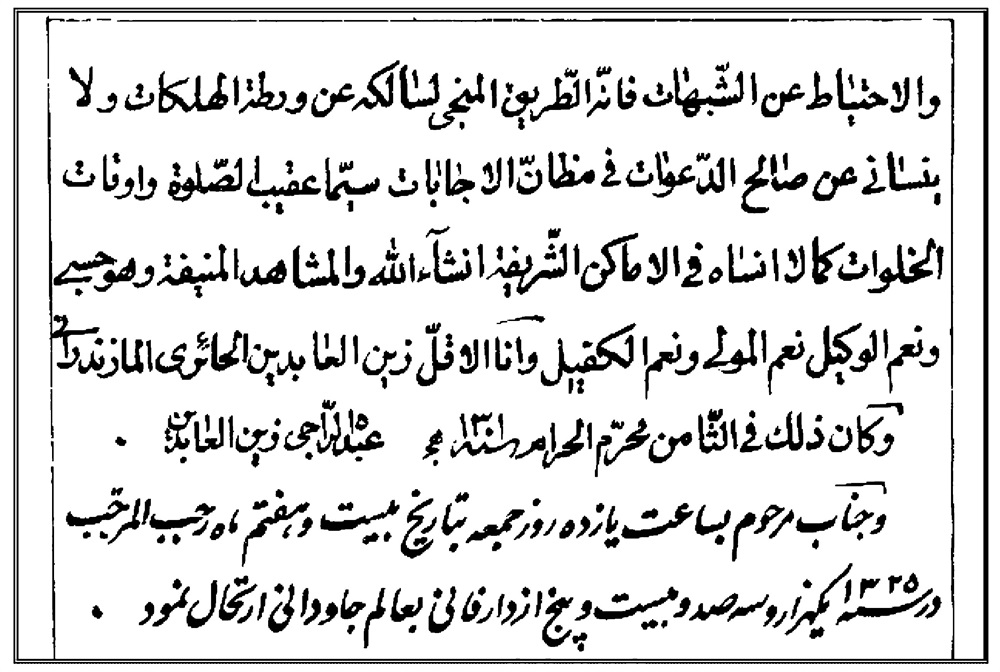 والاحتیاط عن الشّبهات فانّه الطّریق المنجی لسالکه عن ورطة الهلکات ولا
ینسانی عن صالح الدّعوات فی مظانّ الاجابات سیّما عقیب الصّلوة واوقات
الخلوات کما لا انساه فی الاماکن الشّریفة انشآءالله والمشاهد المنیفة وهو حسبی
ونعم الوکیل نعم المولی ونعم الکفیل وانا الاقلّ زین العابدین الحائری المازندرانی
وکان ذلک فی الثّامن محرّم الحرام سنة عبده الرّاجی زین العابدین .
وجناب مرحوم بساعت یازده روز جمعه بتاریخ بیست وهفتم ماه رجب المرجب
در سنه ۱۳۲۵ یکهزار وسه صد وبیست وپنج از دار فانی بعالم جاودانی ارتحال نمود .